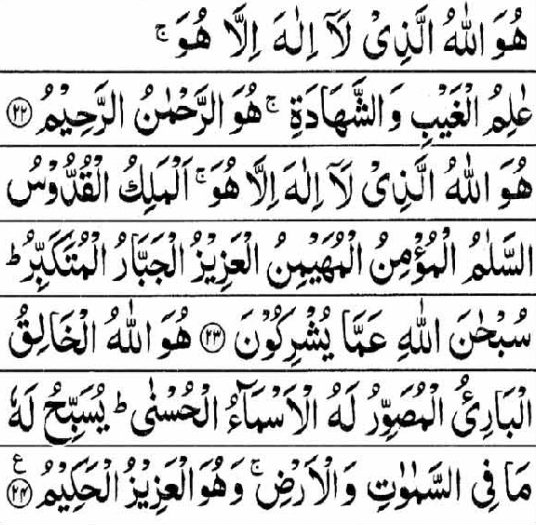 هُوَ اللّٰهُ الَّذِىْ لَاۤ اِلٰهَ اِلَّا هُوَ ۚ
عٰلِمُ الْغَيْبِ وَالشَّهَادَةِ ۚ هُوَ الرَّحْمٰنُ الرَّحِيْمُ ﴿۲۲﴾
هُوَ اللّٰهُ الَّذِىْ لَاۤ اِلٰهَ اِلَّا هُوَ ۚ اَلْمَلِكُ الْقُدُّوْسُ
السَّلٰمُ الْمُؤْمِنُ الْمُهَيْمِنُ الْعَزِيْزُ الْجَبَّارُ الْمُتَكَبِّرُ ؕ
سُبْحٰنَ اللّٰهِ عَمَّا يُشْرِكُوْنَ ﴿۲۳﴾ هُوَ اللّٰهُ الْخَالِقُ
الْبَارِئُ الْمُصَوِّرُ لَهُ الْاَسْمَآءُ الْحُسْنٰى ؕ يُسَبِّحُ لَهٗ
مَا فِى السَّمٰوٰتِ وَالْاَرْضِ ۚ وَهُوَ الْعَزِيْزُ الْحَكِيْمُ ﴿۲۴﴾ ع